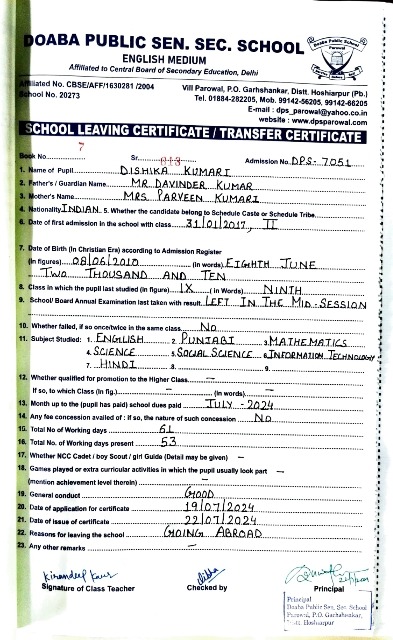 DOABA PUBLIC SEN. SEC. SCHOOL
ENGLISH MEDIUM
Affiliated to Central Board of Secondary Education, Delhi
Affiliated No. CBSE/AFF/1630281 /2004
School No. 20273
Vill Parowal, P.O. Garhshankar, Distt. Hoshiarpur (Pb.)
Tel. 01884-282205, Mob. 99142-56205, 99142-66205
E-mail : dps_parowal@yahoo.co.in
website : www.dpsparowal.com
SCHOOL LEAVING CERTIFICATE / TRANSFER CERTIFICATE
Book No. 7 Sr. 013 Admission No. DPS-7051
1. Name of Pupil DISHIKA KUMARI
2. Father's / Guardian Name MR. DAVINDER KUMAR
3. Mother's Name MRS. PARVEEN KUMARI
4. Nationality INDIAN 5. Whether the candidate belong to Schedule Caste or Schedule Tribe
6. Date of first admission in the school with class 31/01/2017, II
7. Date of Birth (In Christian Era) according to Admission Register
(In figures) 08/06/2010 (In words) EIGHTH JUNE
TWO THOUSAND AND TEN
8. Class in which the pupil last studied (In figure) IX ( in Words) NINTH
9. School/ Board Annual Examination last taken with result. LEFT IN THE MID-SESSION
10. Whether failed, if so once/twice in the same class. NO
11. Subject Studied : 1. ENGLISH 2. PUNJABI 3. MATHEMATICS
4. SCIENCE 5. SOCIAL SCIENCE 6. INFORMATION TECHNOLOGY
7. HINDI 8. 9.
12. Whether qualified for promotion to the Higher Class —
If so, to which Class (In fig.) — (In words) —
13. Month up to the (pupil has paid) school dues paid JULY - 2024
14. Any fee concession availed of : if so, the nature of such concession NO
15. Total No of Working days 61
16. Total No. of Working days present 53
17. Whether NCC Cadet / boy Scout / girl Guide (Detail may be given) —
18. Games played or extra curricular activities in which the pupil usually look part —
(mention achievement level therein) —
19. General conduct GOOD
20. Date of application for certificate 19/07/2024
21. Date of issue of certificate 22/07/2024
22. Reasons for leaving the school GOING ABROAD
23. Any other remarks —
Kirandeep Kaur
Signature of Class Teacher
Checked by
Principal
Principal
Doaba Public Sen. Sec. School
Parowal, P.O. Garhshankar,
Distt. Hoshiarpur